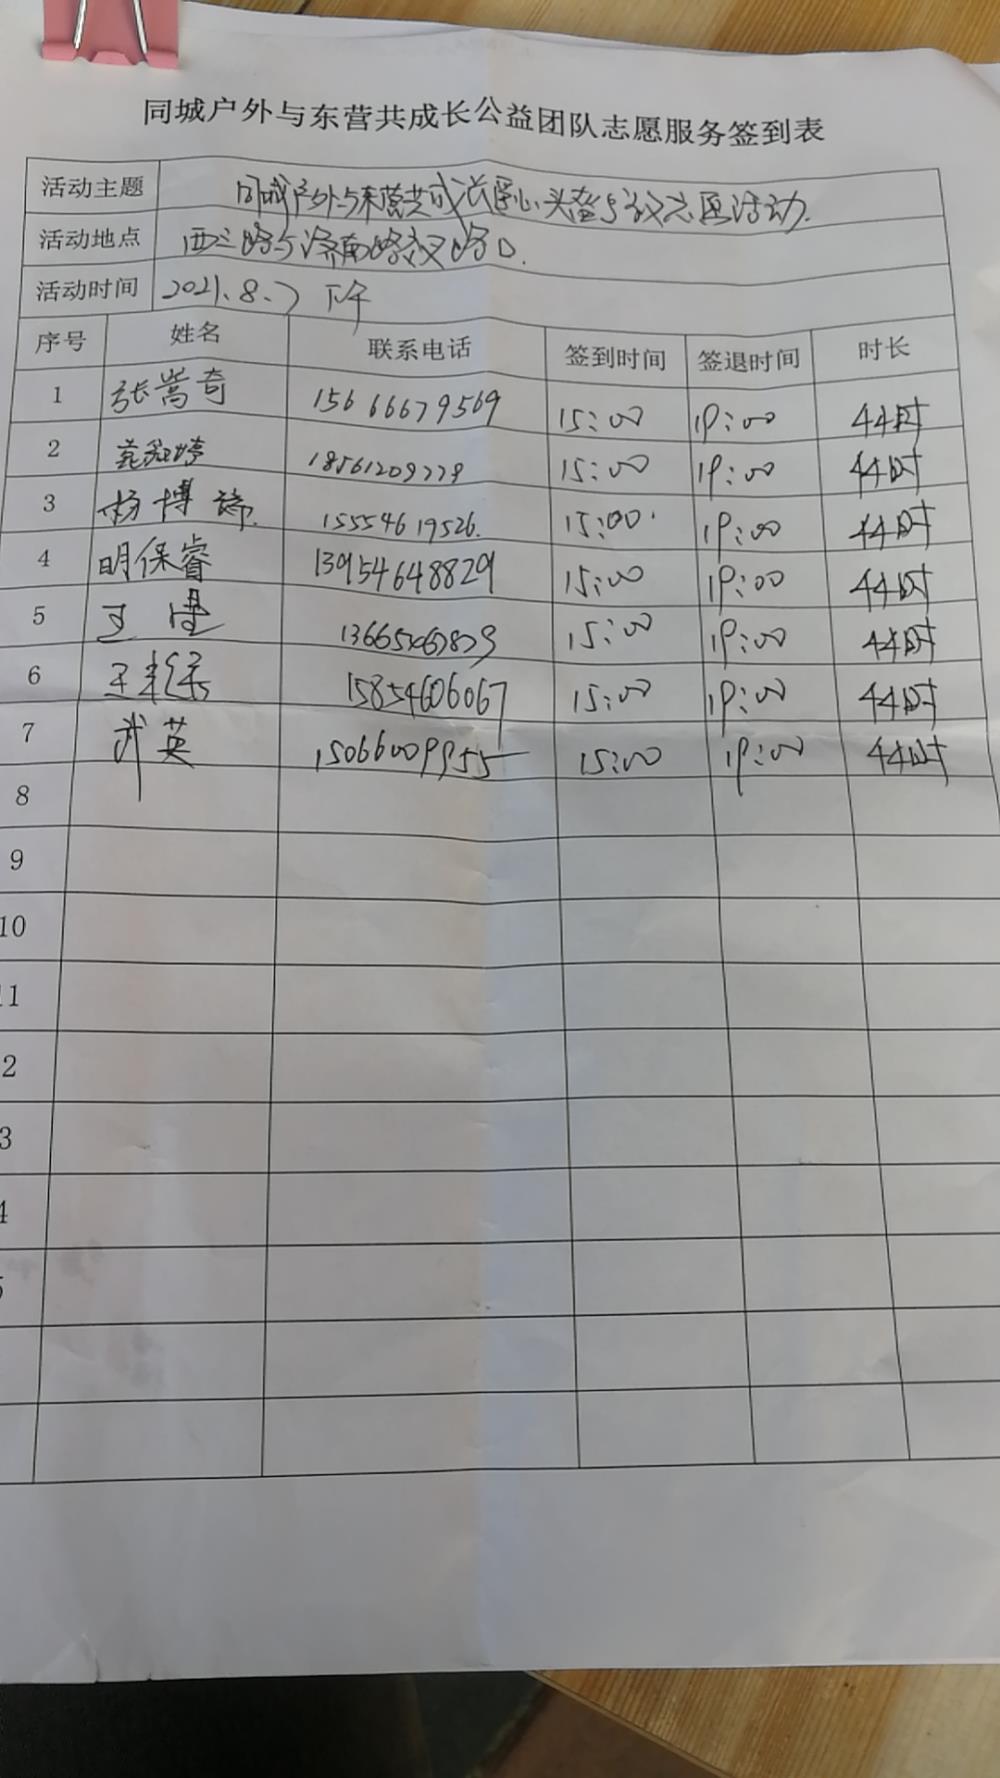 同城户外与东营共成长公益团队志愿服务签到表
活动主题 同城户外与东营共成长 活动.
活动地点 西三路与济南路交叉路口.
活动时间 2021.8.7 下午
序号 姓名 联系电话 签到时间 签退时间 时长
1 张嵩奇 15666679569 15:00 19:00 4小时
2 18561209779 15:00 19:00 4小时
3 杨博 15554619526. 15:00. 19:00 4小时
4 明保睿 13954648829 15:00 19:00 4小时
5 王 15:00 19:00 4小时
6 王 15854606067 15:00 19:00 4小时
7 武英 15066009955 15:00 19:00 4小时
8
9
10
11
2
3
4
5